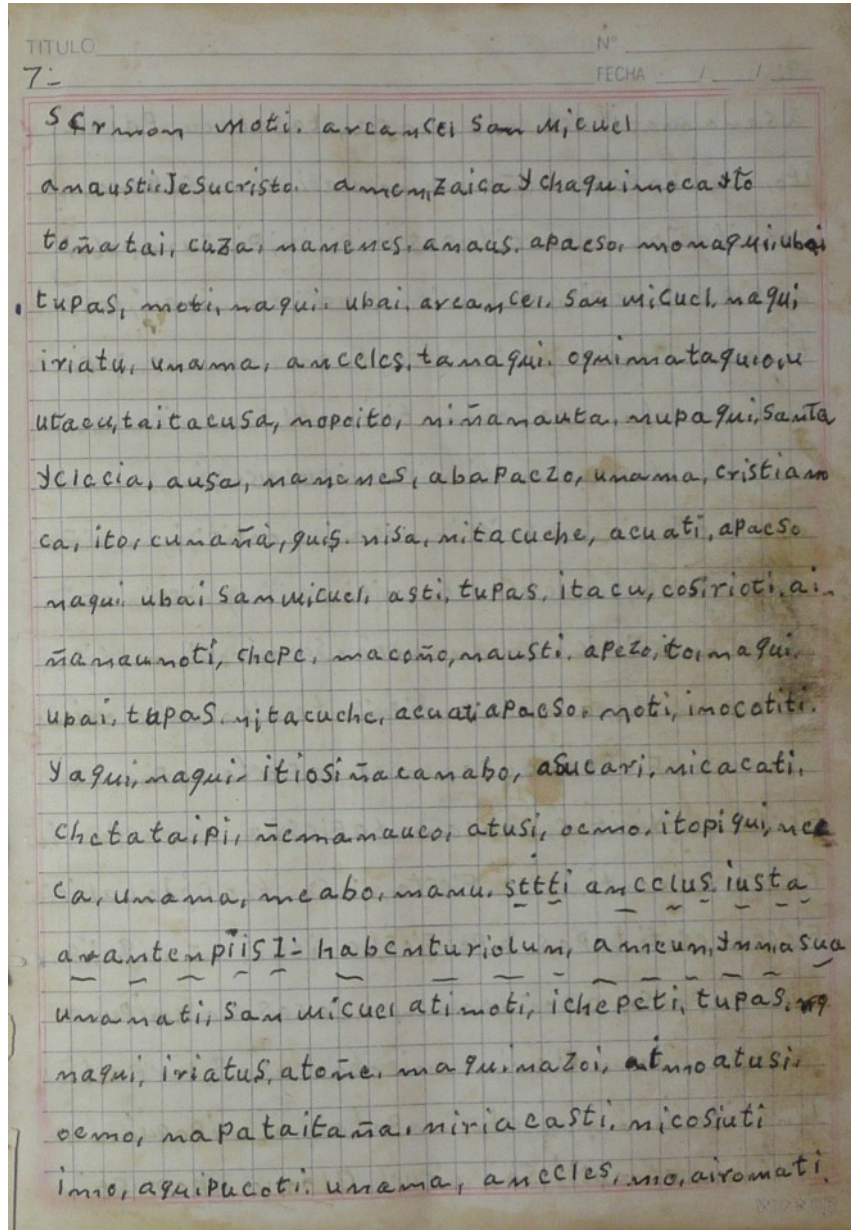 TITULO Nº
7=
FECHA / /
sermon moti. arcancei san Micuel
anaustiiJesucristo. amen,zaica ychaquimocayto
toñatai, cuza, namenes. anaus. apaeso. monaqui,ubai
tupas, moti, naqui. ubai. arcancei. san micucl. naqui
iriatu, unama, anceles, tanaqui. oquimataquio,u
utacu,taitacusa, nopoito, niñanauta, nupaqui, santa
yclecia, ausa, namenes, abapaezo, unama, cristiano
ca, ito, cunaña, quis. nisa, nitacuche, acuati, apaeso
naqui ubai san micuel, asti, tupas, itacu, cosirioti, ai-
ñanaunoti, chepe, macoño, nausti. apezo, ito, naqui.
ubai, tupas. nitacuche, acuatiapaeso. moti, imocotiti.
yaqui, naqui- itiosiñacanabo, asucari, nicacati.
chetataipi, ñemanauco, atusi, oemo. itopiqui, nee
ca, unama, meabo, manu. sttti ancelus iusta
avantenpiisI= habenturiolun, ameun, ynnasua
unanati, san micuel atimoti, ichepeti, tupas.
naqui, iriatus, atoñe, maquinazoi, atmoatusi.
oemo, napataitaña. niriacasti. nicosiuti
imo, aquipucoti. unama, anceles, mo, airomati.